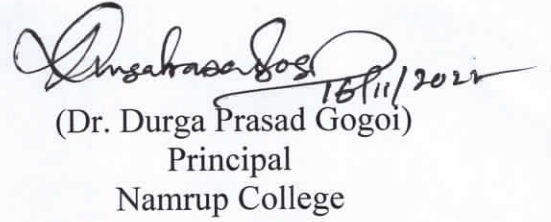 16/11/2022
(Dr. Durga Prasad Gogoi)
Principal
Namrup College